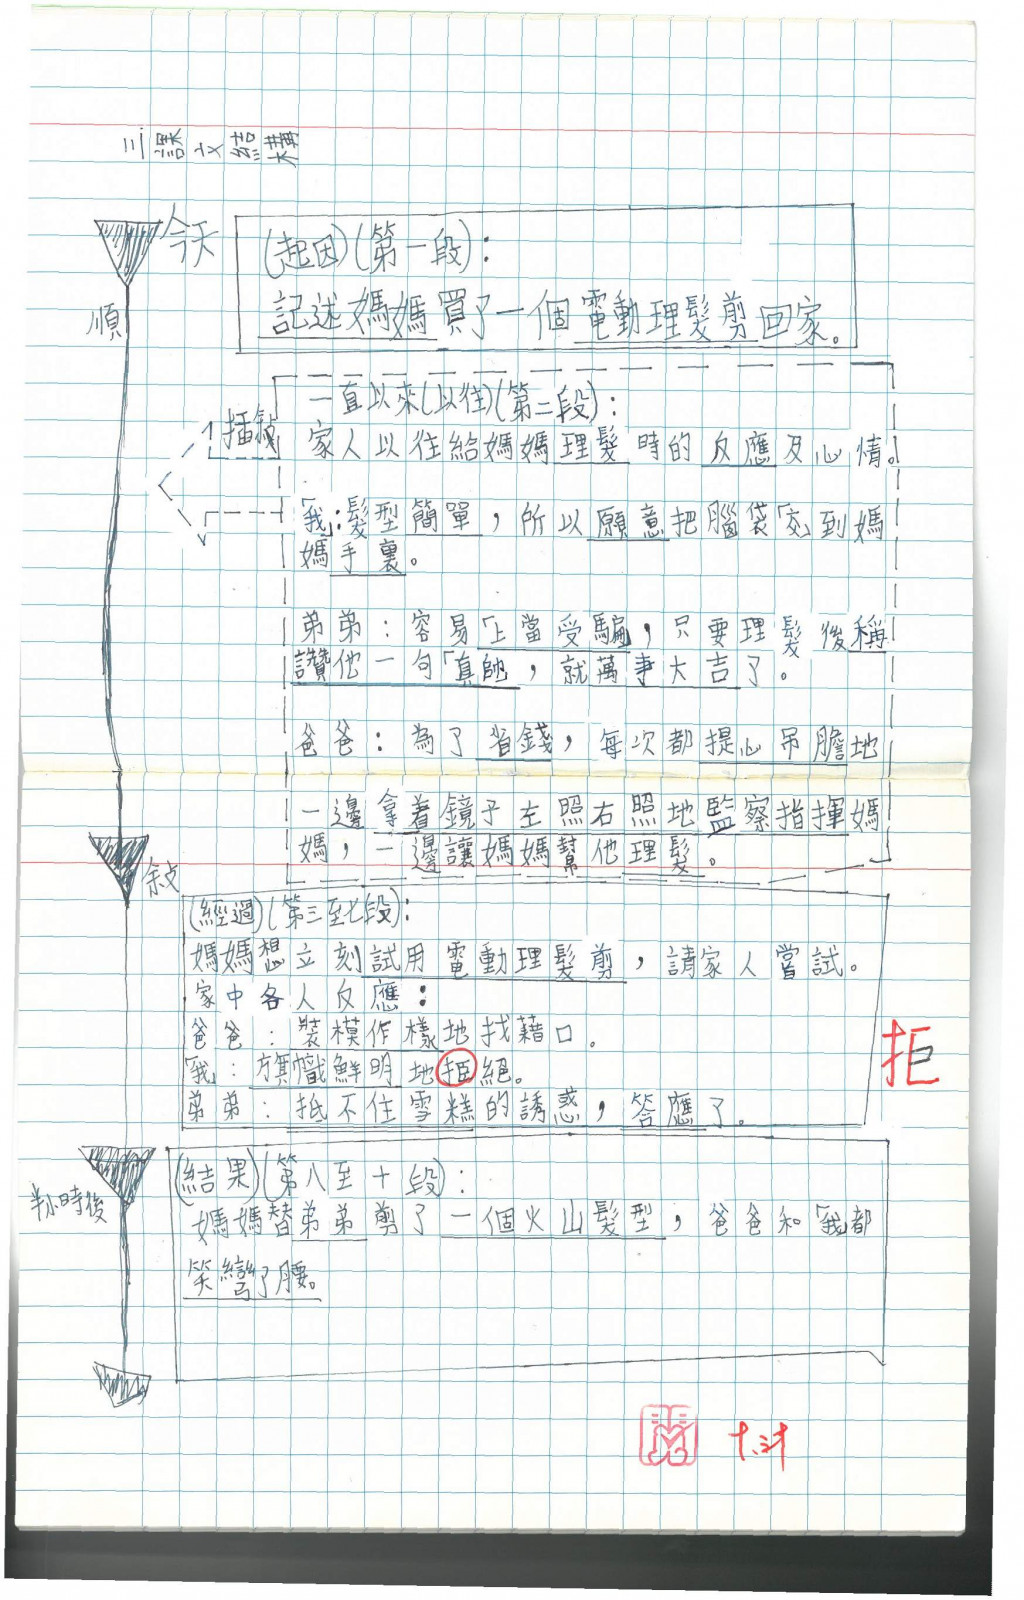 三.課文結構
今天
順
(起因)(第一段):
記述媽媽買了一個電動理髮剪回家。
插敍
一直以來(以往)(第二段):
家人以往給媽媽理髮時的反應及心情。
「我」:髮型簡單,所以願意把腦袋「交」到媽
媽手裏。
弟弟:容易「上當受騙」,只要理髮後稱
讚他一句「真帥」,就萬事大吉了。
爸爸:為了省錢,每次都提心吊膽地
一邊拿着鏡子左照右照地監察指揮媽
媽,一邊讓媽媽幫他理髮。
敍
(經過)(第三至七段):
媽媽想立刻試用電動理髮剪,請家人嘗試。
家中各人反應:
爸爸:裝模作樣地找藉口。
「我」:旗幟鮮明地拒絕。
拒
弟弟:抵不住雪糕的誘惑,答應了。
半小時後
(結果)(第八至十段):
媽媽替弟弟剪了一個火山髮型,爸爸和「我」都
笑彎了腰。
閱